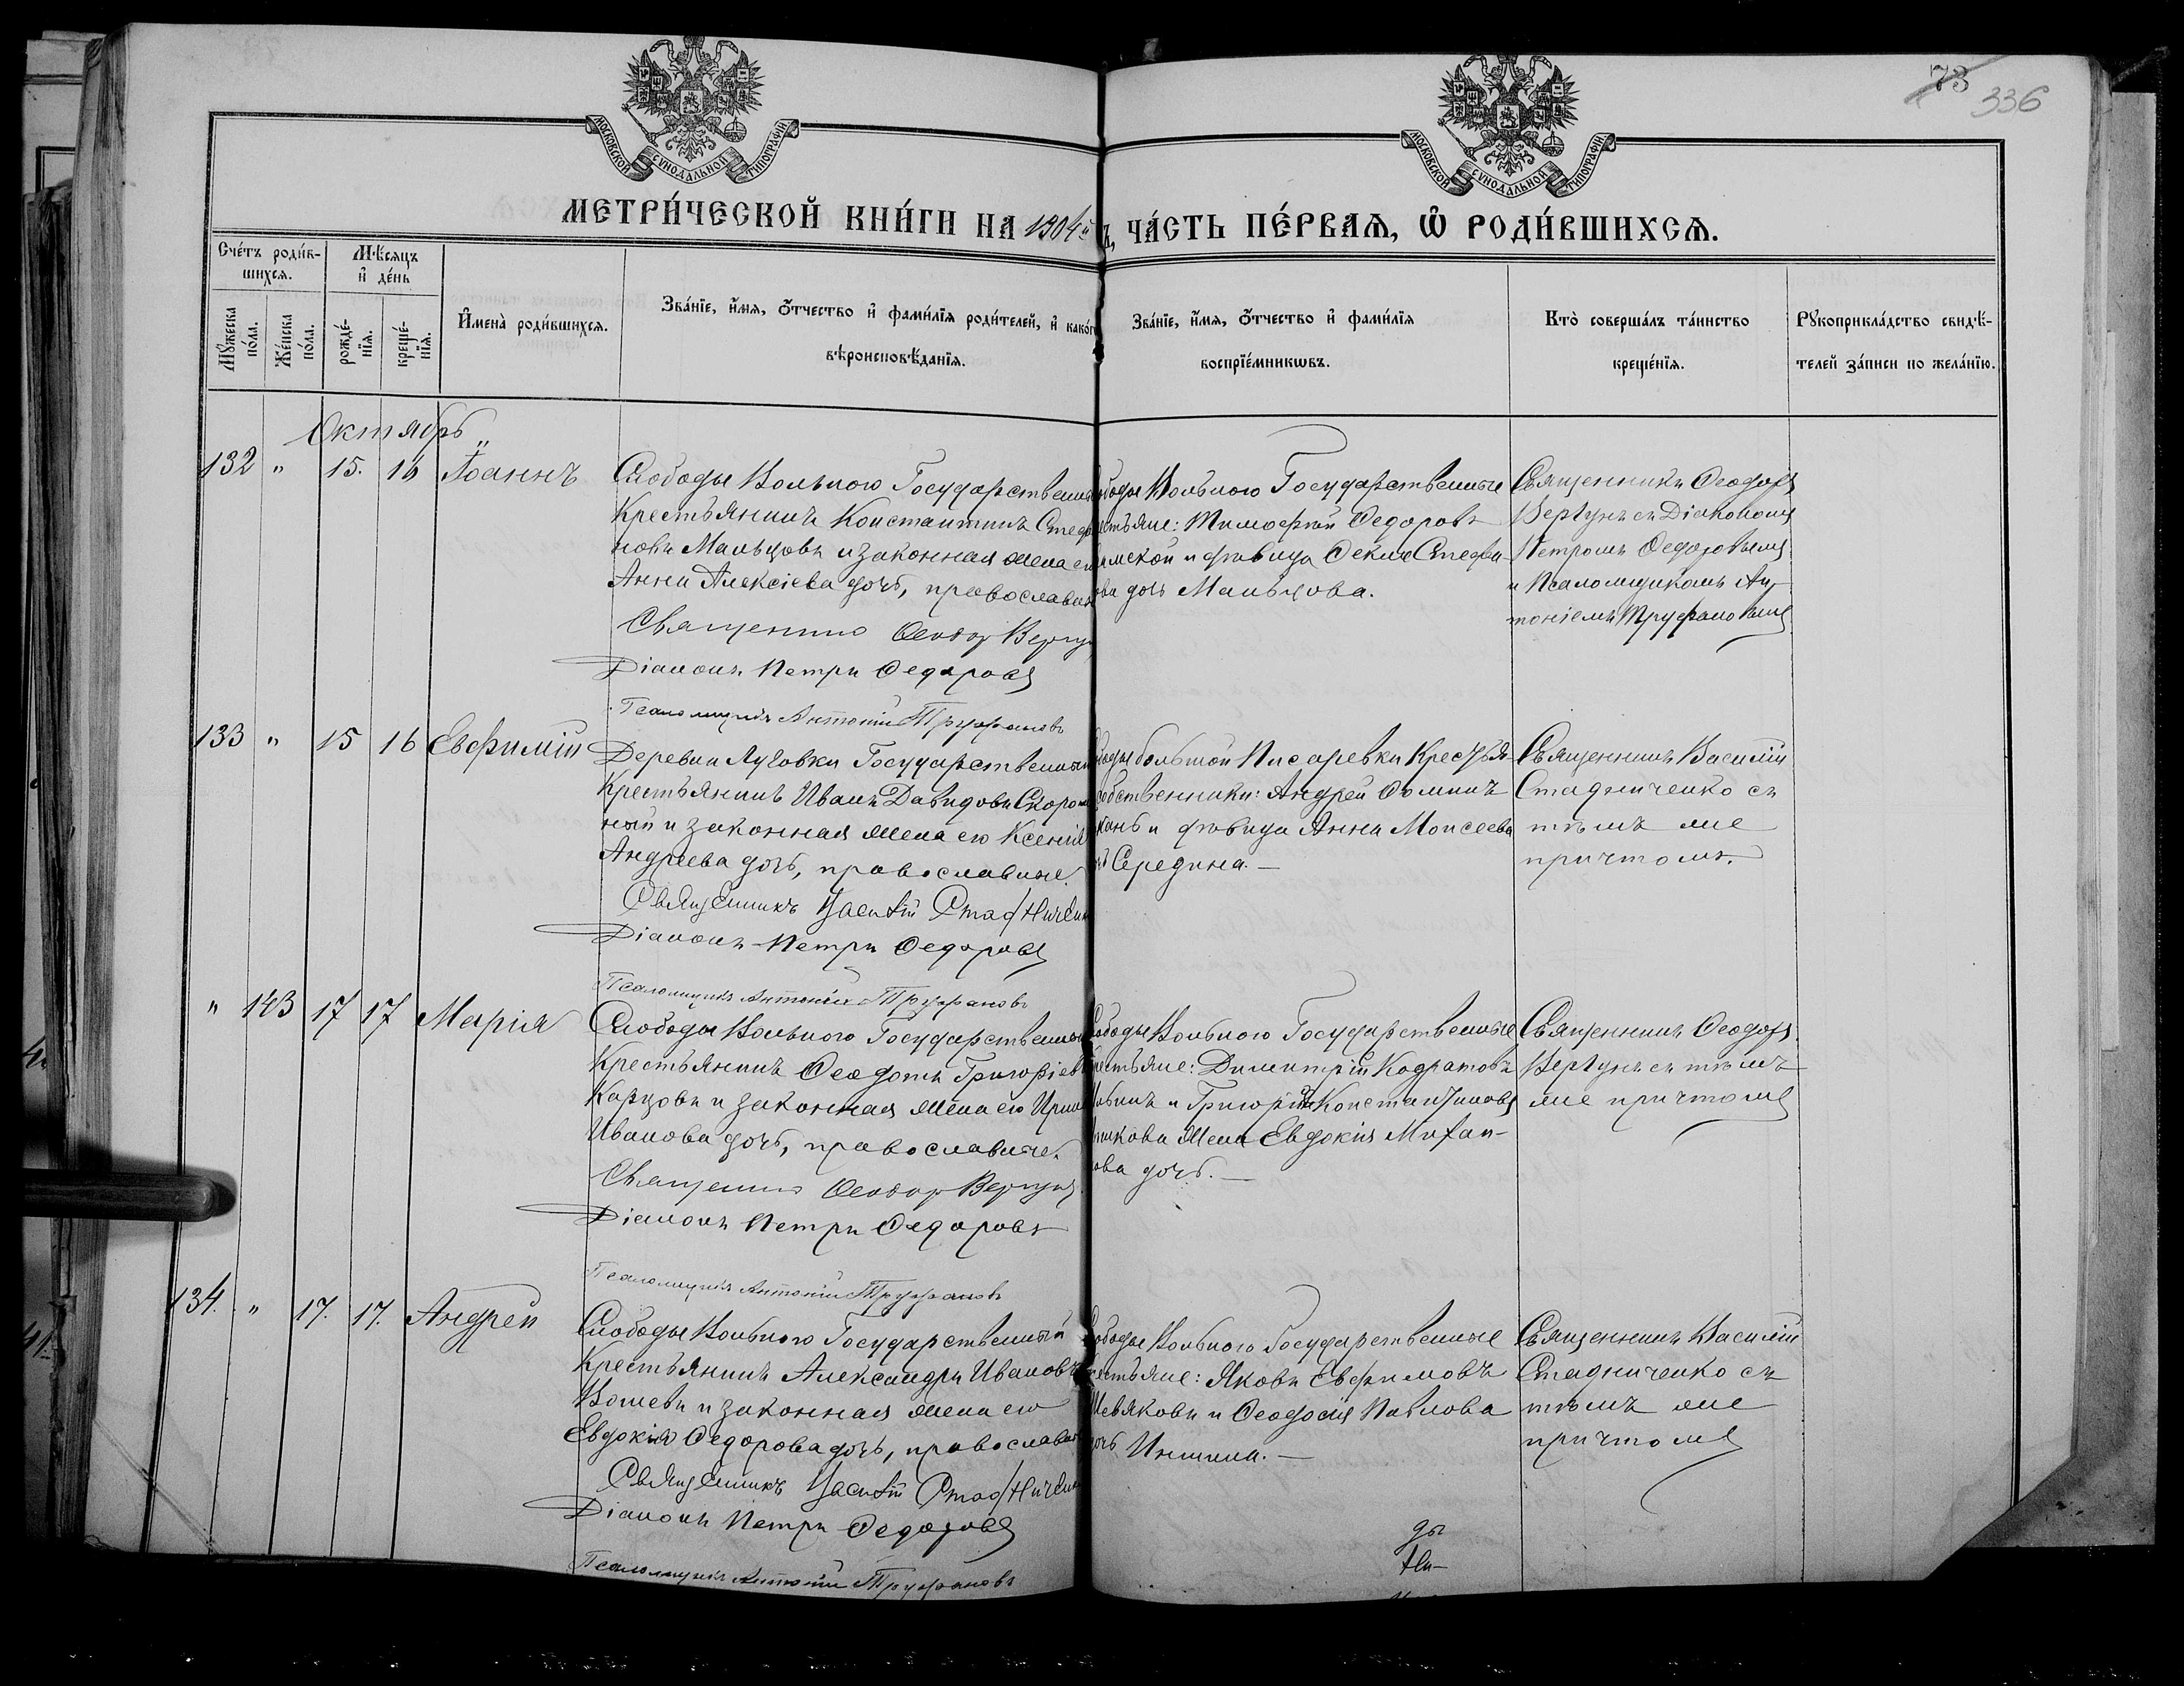 73
336
МОСКОВСКОЙ СѴНОДАЛЬНОЙ ТИПОГРАФІИ
МОСКОВСКОЙ СѴНОДАЛЬНОЙ ТИПОГРАФІИ
МЕТРИ́ЧЕСКОЙ КНИ́ГИ НА 1904й
ЧА́СТЬ ПЕ́РВАѦ, Ѽ РОДИ́ВШИХСѦ.
Сче́тъ роди́вшихсѧ.
Мꙋ́жеска по́ла.
Же́нска по́ла.
Мѣ́сѧцъ и҆ де́нь
рожде́нїѧ.
креще́нїѧ.
И҆мена̀ роди́вшихсѧ.
Зва́нїе, и҆́мѧ, ѻ҆́тчество и҆ фами́лїѧ роди́телей, и҆ како́гѡ
вѣроисповѣ́данїѧ.
Зва́нїе, и҆́мѧ, ѻ҆́тчество и҆ фами́лїѧ
воспрїе́мникѡвъ.
Кто̀ соверша́лъ та́инство
креще́нїѧ.
Рꙋкоприкла́дство свидѣ́телей за́писи по жела́нїю.
Октябрь
132 " 15. 16 Іоаннъ
Слободы Вольного Государственный
Крестьянинъ Константинъ Стефановъ Мальцовъ и законная жена его
Анна Алексіева дочь, православные
Священникъ Ѳеодоръ Вергунъ
Діаконъ Петръ Ѳедоровъ
Псаломщикъ Антоній Труфановъ
Слободы Вольного Государственные
Крестьяне: Тимофей Ѳедоровъ
и дѣвица Ѳекла Стефанова дочь Мальцова.
Священникъ Ѳеодоръ
Вергунъ съ Діакономъ
Петромъ Ѳедоровымъ
и Псаломщикомъ Антоніемъ Труфановымъ
133 " 15 16 Евфимій
Деревни Луговки Государственный
Крестьянинъ Иванъ Давидовъ
и законная жена его Ксенія
Андреева дочь, православные.
Священникъ Василій Стадниченко
Діаконъ Петръ Ѳедоровъ
Псаломщикъ Антоній Труфановъ
Слободы большой Писаревки Крестьяне
собственники: Андрей Ѳоминъ
и дѣвица Анна Моисеева
дочь Середина. —
Священникъ Василій
Стадниченко съ
тѣмъ же
причтомъ.
" 143 17 17 Марія
Слободы Вольного Государственный
Крестьянинъ Ѳеодотъ Григоріевъ
Карцовъ и законная жена его Ирина
Иванова дочь, православные.
Священникъ Ѳеодоръ Вергунъ
Діаконъ Петръ Ѳедоровъ
Псаломщикъ Антоній Труфановъ
Слободы Вольного Государственные
Крестьяне: Димитрій Кодратовъ
и Григорія Константинова
жена Евдокія Михайлова дочь. —
Священникъ Ѳеодоръ
Вергунъ съ тѣмъ
же причтомъ
134. " 17. 17. Андрей
Слободы Вольного Государственный
Крестьянинъ Александръ Ивановъ
и законная жена его
Евдокія Ѳедорова дочь, православные
Священникъ Василій Стадниченко
Діаконъ Петръ Ѳедоровъ
Псаломщикъ Антоній Труфановъ
Слободы Вольного Государственные
Крестьяне: Яковъ Евфимовъ
Шевяковъ и Ѳеодосія Павлова
дочь
Священникъ Василій
Стадниченко съ
тѣмъ же
причтомъ